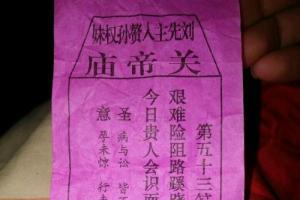 刘先主入赘孙权妹
关帝庙
第五十三
艰难险阻路蹊
今日贵人会识面
圣意
病与讼
孕未惊